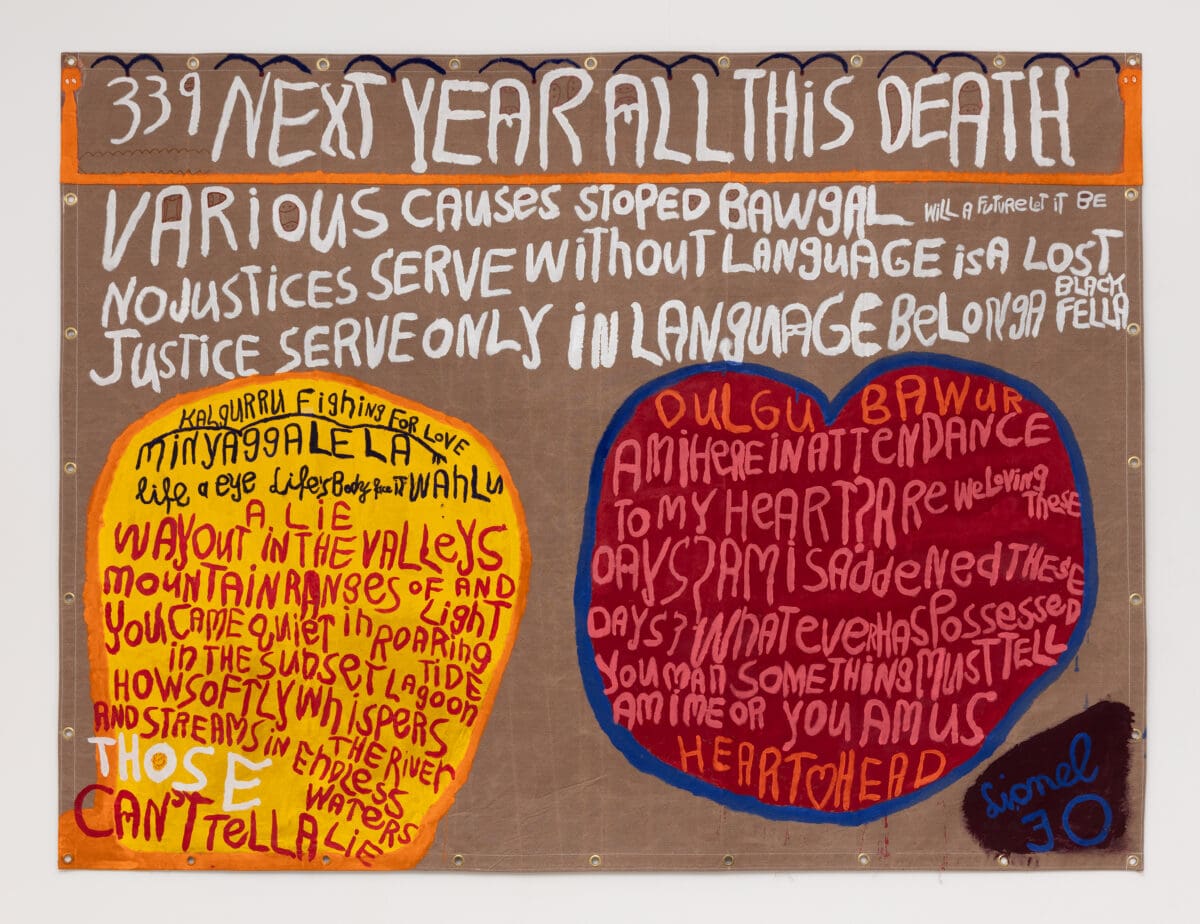 339 NEXT YEAR ALL THIS DEATH
VARIOUS CAUSES STOPED BAWGAL WILL A FUTURE LET IT BE
NO JUSTICES SERVE WITHOUT LANGUAGE is A LOST
JUSTICE SERVE ONLY IN LANGUAGE BELONGA BLACK FELLA
KALGURRU FIGHING FOR LOVE
MINYAGGALELA
life a eye Life's Body face it WAHLU
A LIE
WAY OUT IN THE VALLEYS
MOUNTAIN RANGES OF AND
YOU CAME QUIET IN ROARING LIGHT
IN THE SUNSET TIDE
HOW SOFTLY WHISPERS LAGOON
AND STREAMS IN THE RIVER
THOSE ENDLESS
WATERS
CAN'T TELL A LIE
DULGU BAWUR
AM I HERE IN ATTENDANCE
TO MY HEART? ARE WE LOVING THESE
DAYS? AM I SADDENED THESE
DAYS? WHATEVER HAS POSSESSED
YOU MAN SOMETHING MUST TELL
AM I ME OR YOU AM US
HEART HEAD
Lionel